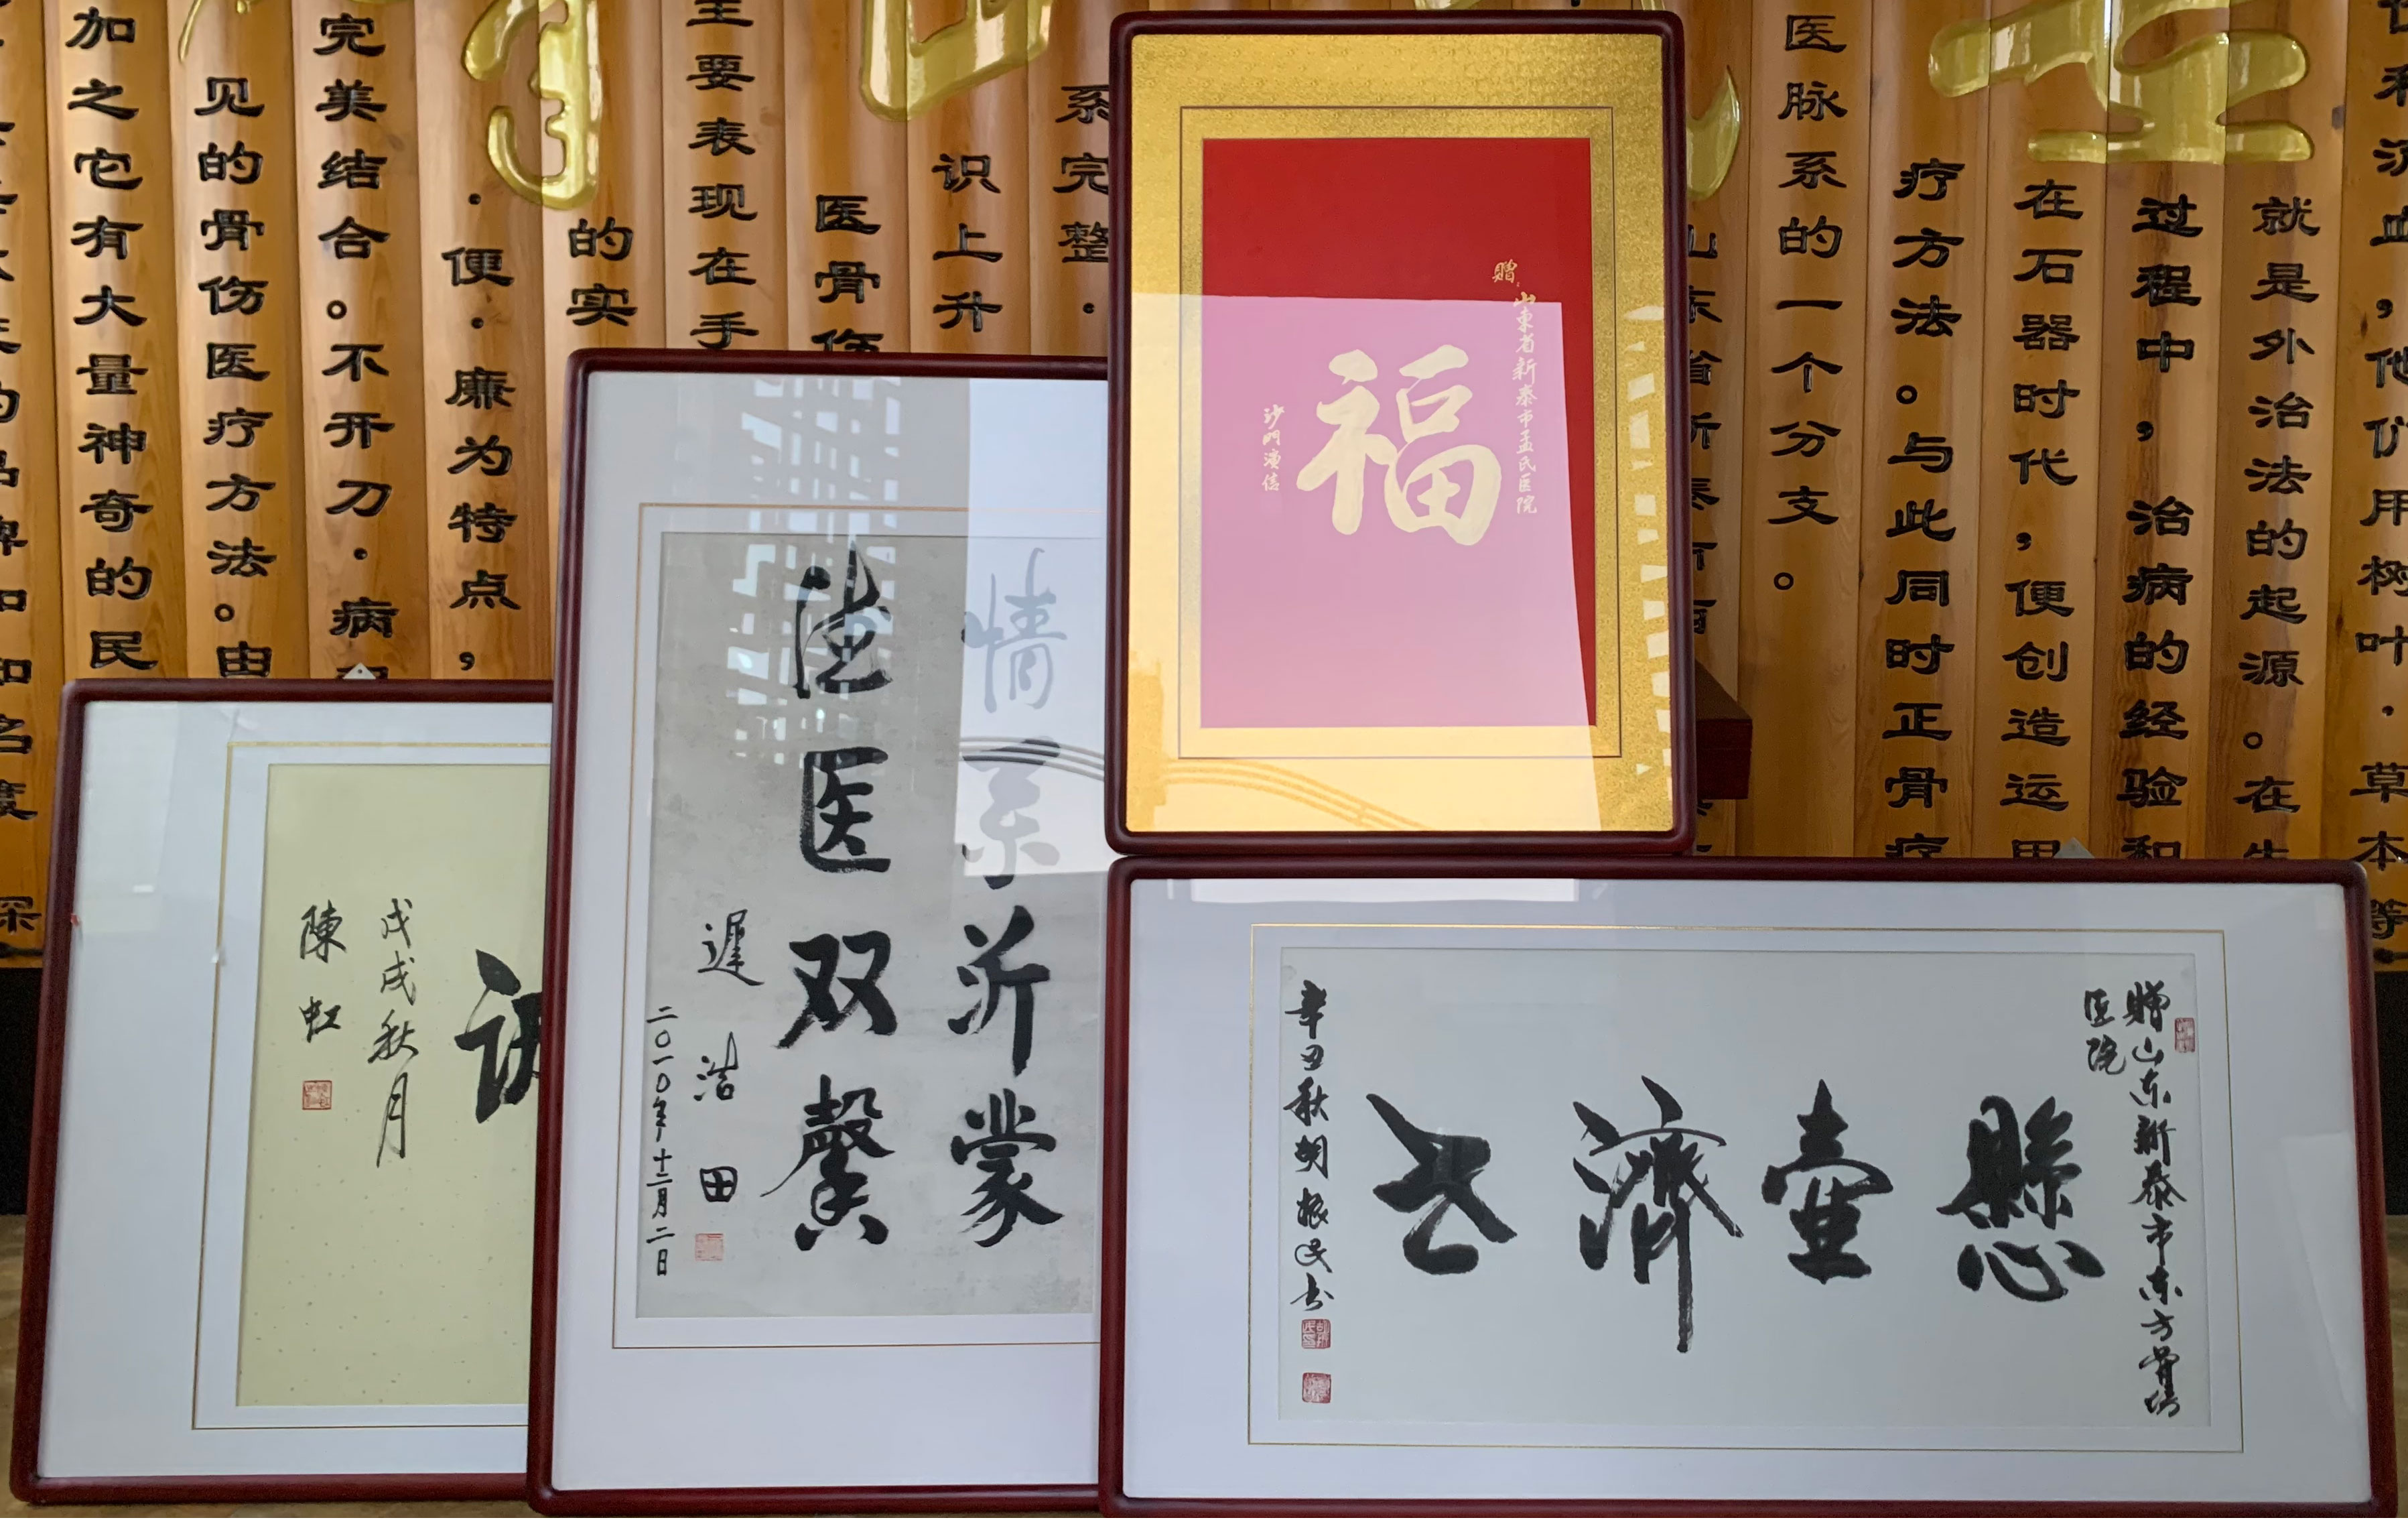 加之它有大量神奇的民
见的骨伤医疗方法。由
完美结合。不开刀·病
·便·廉为特点，
的实
主要表现在手
医骨伤
识上升
系完整·
医脉系的一个分支。
疗方法。与此同时正骨疗
在石器时代，便创造运用
过程中，治病的经验和
就是外治法的起源。在生
血，他们用树叶·草本等
赠
山东省新泰市孟氏医院
福
沙門演信
情系沂蒙
德医双馨
遲浩田
二〇一〇年十二月二日
戊戌秋月
陳虹
赠山东新泰市东方骨伤
医院
懸壺濟世
辛丑秋胡振民书